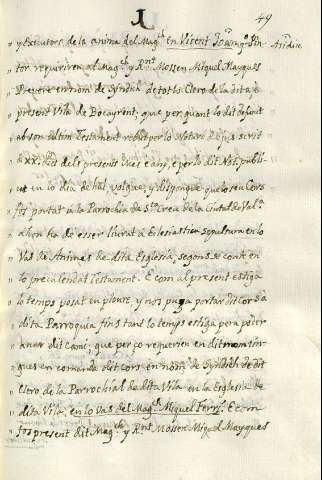 1
49
y Executors de la anima del Magch en Vicent Joan
tor requiriren al Magch y Rnt Mossen Miquel Mayques
Prevere en nom de Syndich de tot lo Clero de la dita, e
present Vila de Bocayrent, que per quant lo dit defunt
ab son ultim Testament rebut per lo Notari scrit
dels presents mes e any, e per lo dit publi
cat en lo dia de hui, volgue, y dispongue que lo seu Cors
fos portat a la Parrochia de Sta Creu de la Ciutat de Vala
ahon ha de esser lliurat a Eclesiastica sepultura en lo
Vas de Animes de dita Esglesia, segons se conte en
lo precalendat Testament. E com al present estiga
lo temps posat en ploure, y nos puga portar dit Cors a
dita Parroquia fins tant lo temps estiga pera poder
anar dit cami, que per ço requerien en dit nom tin
gues en comanda dit cors en nom de Syndich de dit
Clero de la Parrochial de dita Vila en la Esglesia de
dita Vila, en lo Vas del Magch Miquel Ferrs. E com
fos present dit Magch y Rnt Mossen Miquel Mayques